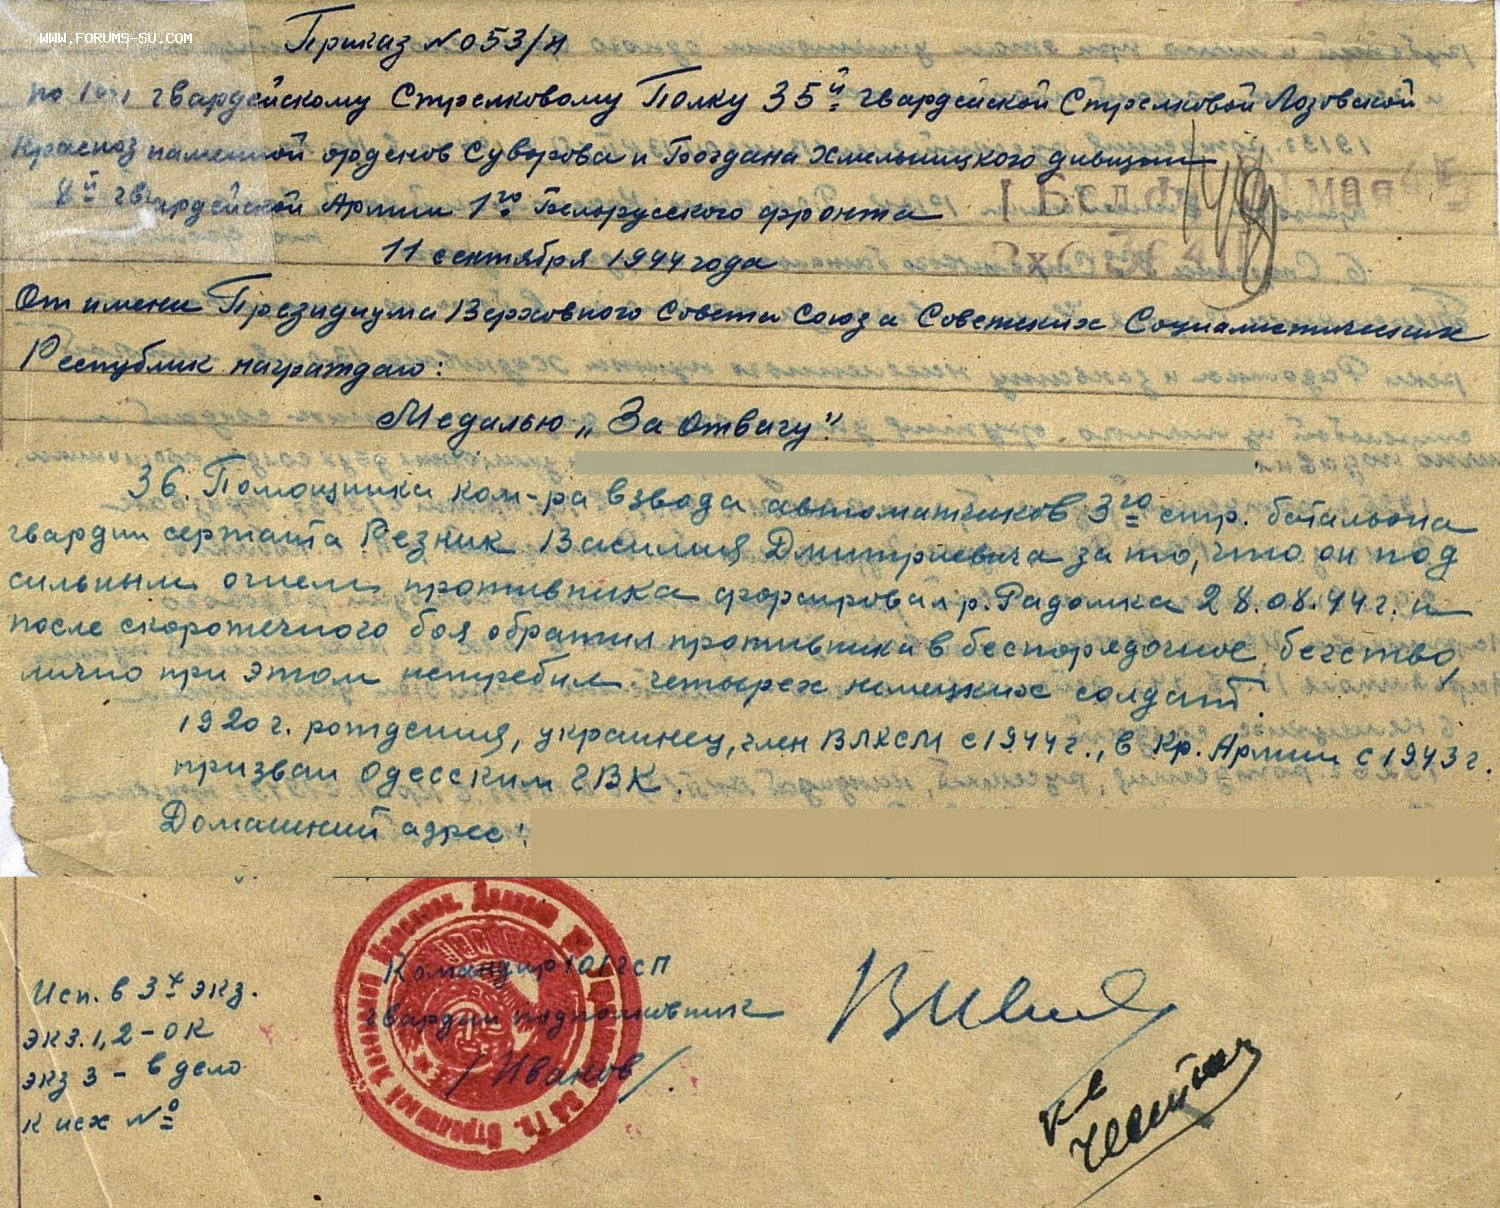 www.forums-su.com
Приказ № 053/н
по 101 гвардейскому Стрелковому Полку 35й гвардейской Стрелковой Лозовской
Краснознаменной орденов Суворова и Богдана Хмельницкого дивизии
8й гвардейской Армии 1го Белорусского фронта
11 сентября 1944 года
От имени Президиума Верховного Совета Союза Советских Социалистических
Республик награждаю:
Медалью „За отвагу".
36. Помощника ком-ра взвода автоматчиков 3го стр. батальона
гвардии сержанта Резник Василия Дмитриевича за то, что он под
сильным огнем противника форсировал р. Радомка 28.08.44 г. и
после скоротечного боя обратил противника в беспорядочное бегство,
лично при этом истребил четырех немецких солдат.
1920 г. рождения, украинец, член ВЛКСМ с 1944 г., в Кр. Армии с 1943 г.
призван Одесским ГВК.
Домашний адрес:
Исп. в 3х экз.
экз. 1,2 – ОК
экз 3 – в дело
к исх №
Командир 101 гсп
гвардии подполковник
/Иванов/.